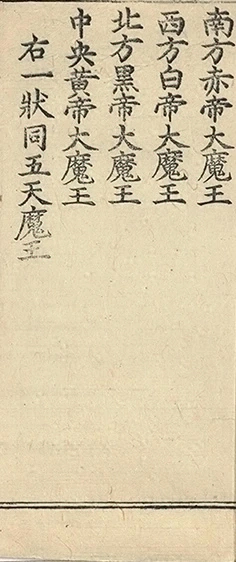 南方赤帝大魔王
西方白帝大魔王
北方黑帝大魔王
中央黄帝大魔王
右一狀同五天魔王